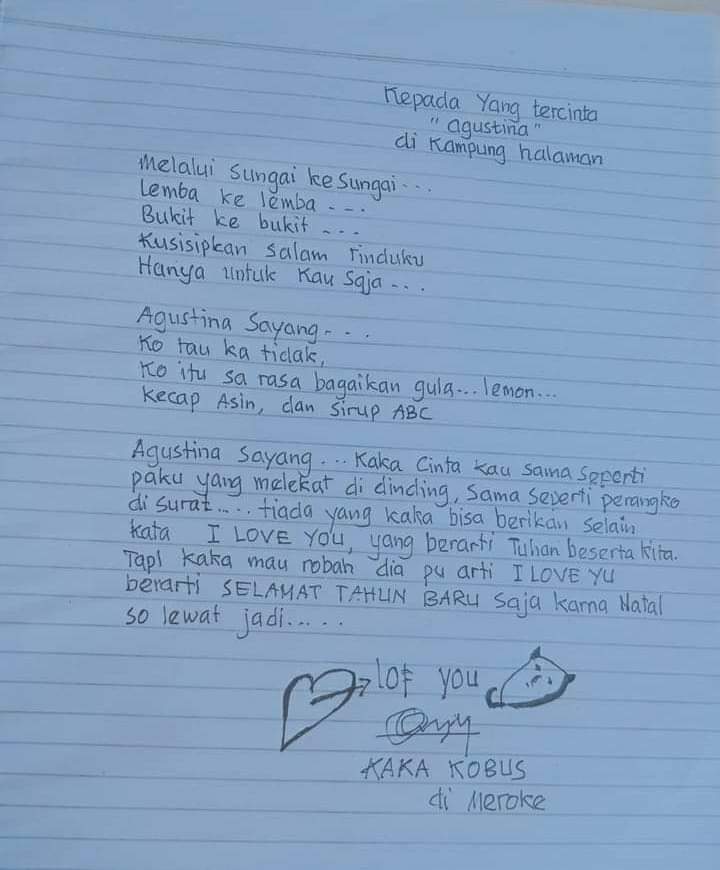 Kepada Yang tercinta
"agustina"
di Kampung halaman
Melalui Sungai ke Sungai...
Lemba ke lemba...
Bukit ke bukit...
Kusisipkan Salam rinduku
Hanya untuk Kau Saja...
Agustina Sayang...
Ko tau ka tidak,
Ko itu sa rasa bagaikan gula...lemon...
Kecap Asin, dan Sirup ABC
Agustina Sayang... Kaka Cinta Kau Sama Seperti
paku yang melekat di dinding, Sama Seperti perangko
di surat..... tiada yang kaka bisa berikan Selain
kata I LOVE YOU, yang berarti Tuhan beserta Kita.
Tapi Kaka mau robah dia pu arti I LOVE YU
berarti SELAMAT TAHUN BARU Saja Karna Natal
so lewat jadi.....
lof you
KAKA KOBUS
di Meroke